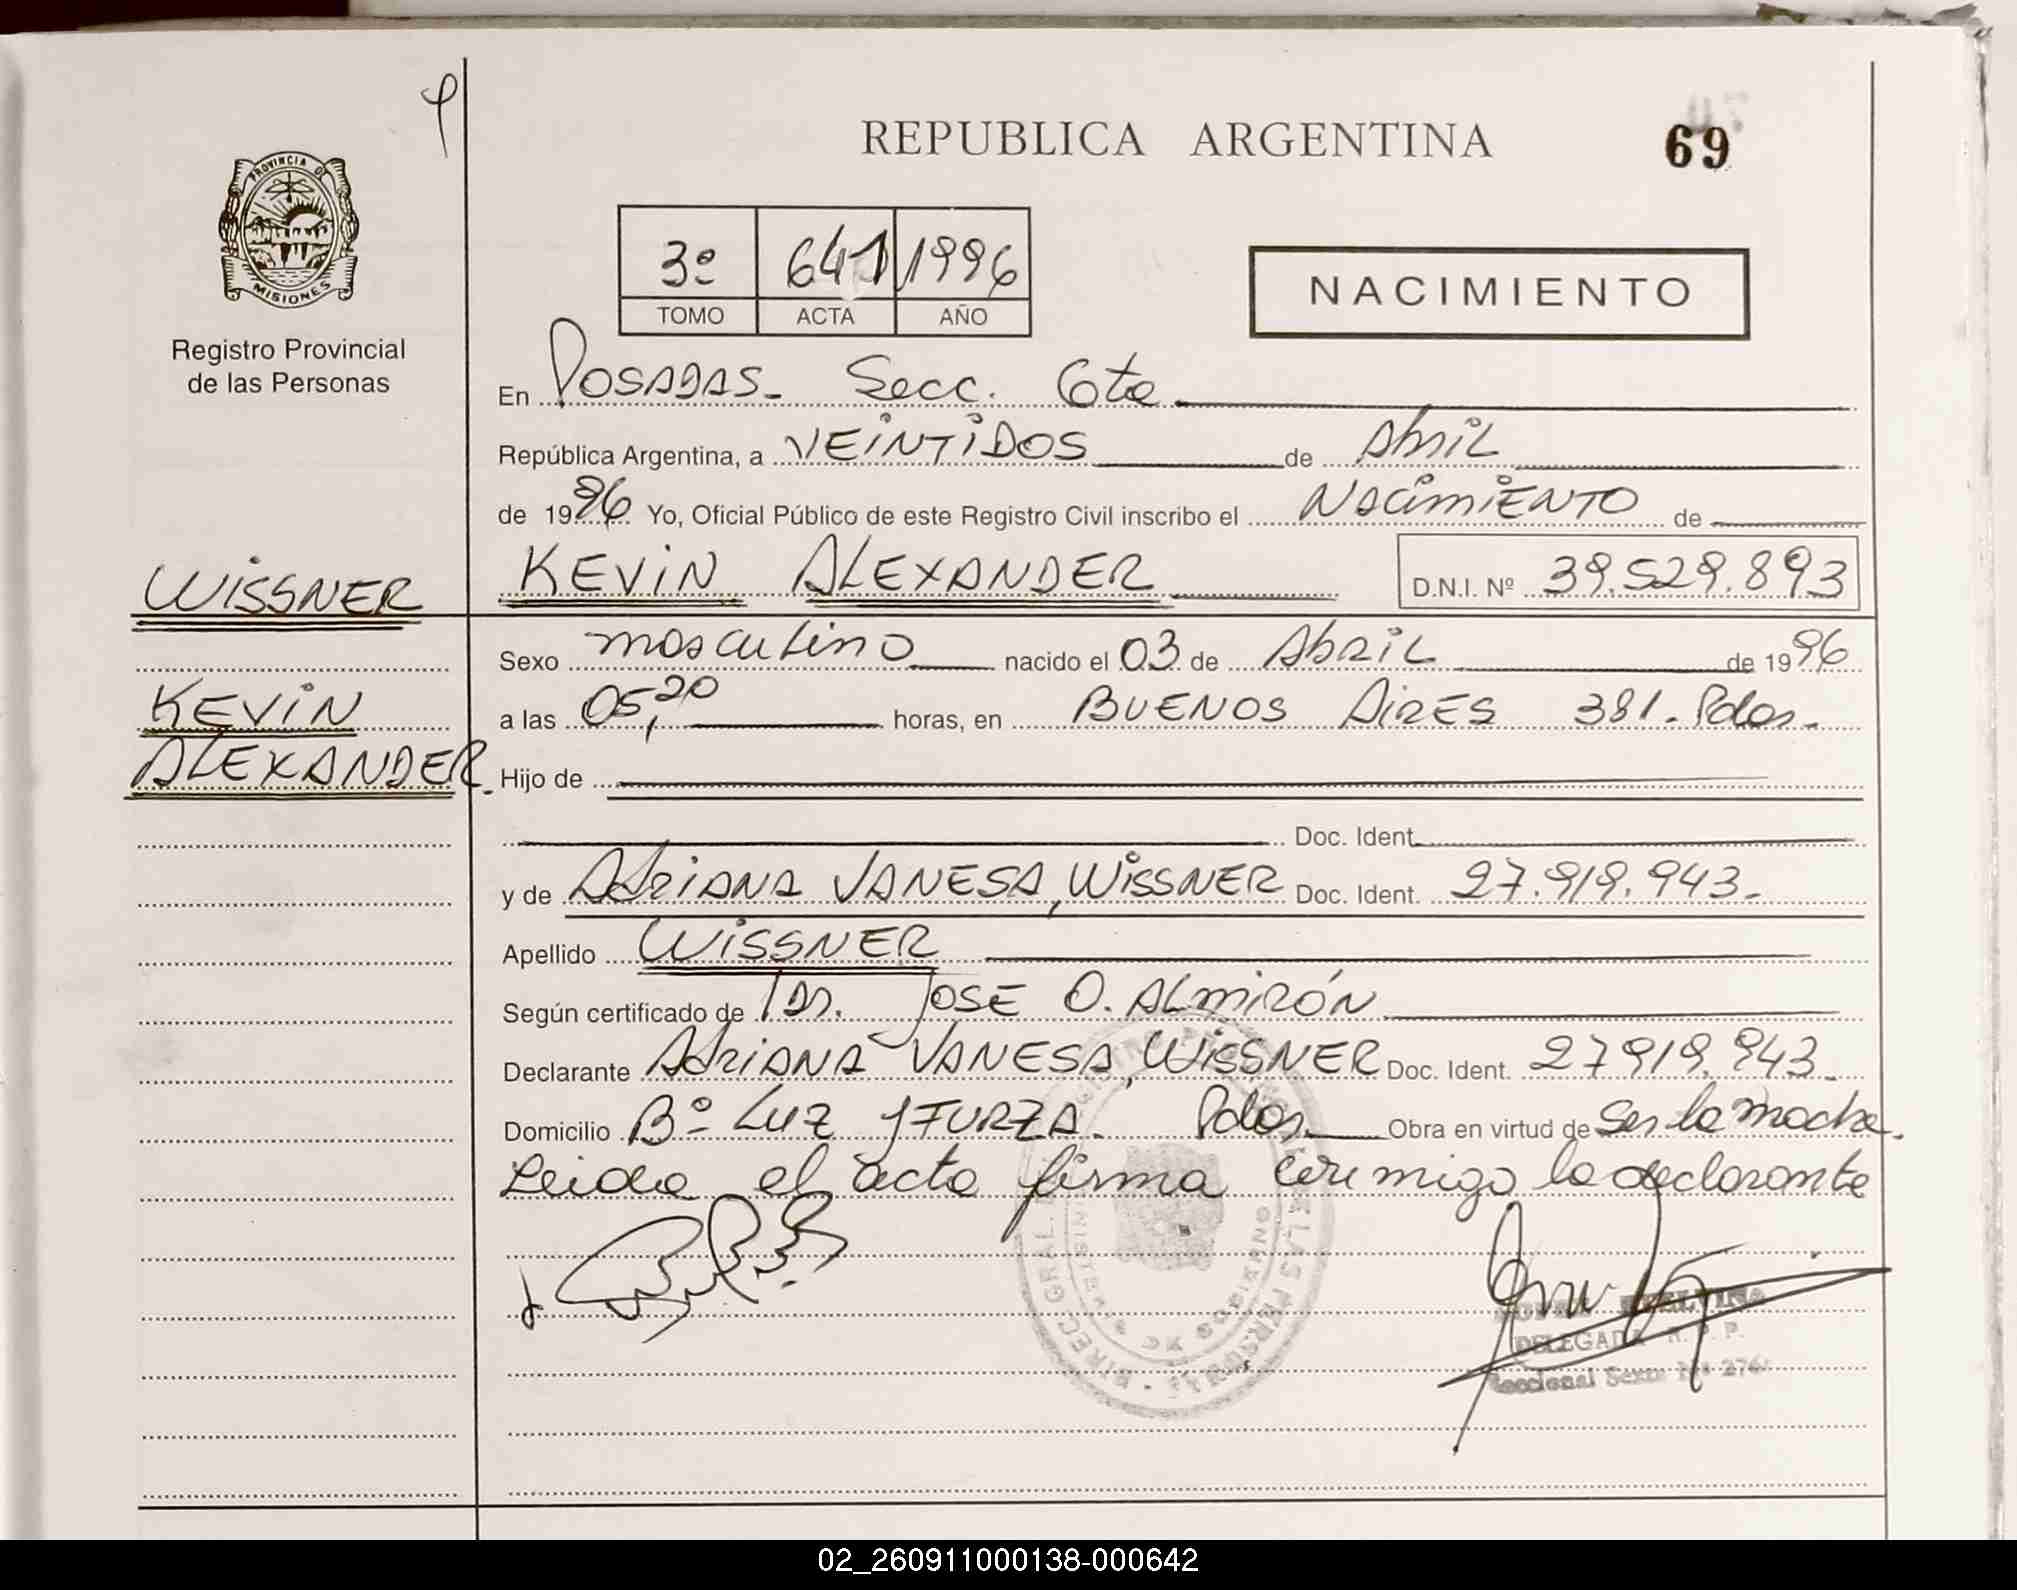 REPUBLICA ARGENTINA
69
PROVINCIA DE
MISIONES
Registro Provincial
de las Personas
3º 641 1996
TOMO ACTA AÑO
NACIMIENTO
En POSADAS- Secc. 6ta
República Argentina, a VEINTIDOS de Abril
de 1996 Yo, Oficial Público de este Registro Civil inscribo el NacimiENTO de
WISSNER
KEVIN ALEXANDER D.N.I. Nº 39.529.893
Sexo masculino nacido el 03 de Abril de 1996
KEVIN
ALEXANDER.
a las 05,20 horas, en BUENOS AIRES 381. Pdas.
Hijo de
Doc. Ident.
y de ADRIANA VANESA, WISSNER Doc. Ident. 27.919.943.-
Apellido WISSNER
Según certificado de Dr. JOSE O. ALMIRÓN
Declarante ADRIANA VANESA, WISSNER Doc. Ident. 27919.943.-
Domicilio Bº LUZ Y FUERZA. Pdas. Obra en virtud de Ser la madre.
Leida el acta firma conmigo la declarante
DELEGADA R. P. P.
Seccional Sexta
02_260911000138-000642